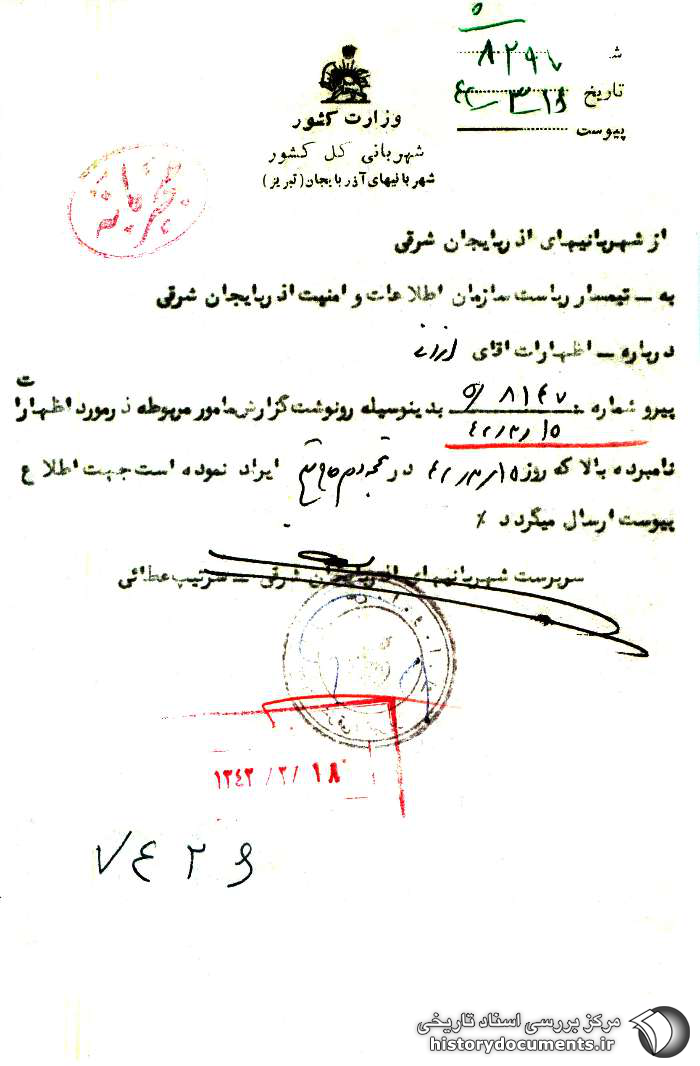 ۵
ش ۸۲۹۷
تاریخ ۴۲/۳/۱۶
پیوست
وزارت کشور
شهربانی کل کشور
شهربانیهای آذربایجان (تبریز)
محرمانه
از شهربانیهای اذربایجان شرقی
به – تیمسار ریاست سازمان اطلاعات و امنیت اذربایجان شرقی
درباره – اظهارات اقای
پیرو شماره ۵/۸۱۴۷ بدینوسیله رونوشت گزارش مامور مربوطه درمورد اظهارات
۴۲/۳/۱۵
نامبرده بالا که روز ۴۲/۳/۱۵ در ایراد نموده است جهت اطلاع
پیوست ارسال میگردد ٪
سرپرست شهربانیهای اذربایجان شرقی – سرتیپ عطائی
۱۳۴۲/۳/۱۸
۷۴۲۶
مرکز بررسی اسناد تاریخی
historydocuments.ir